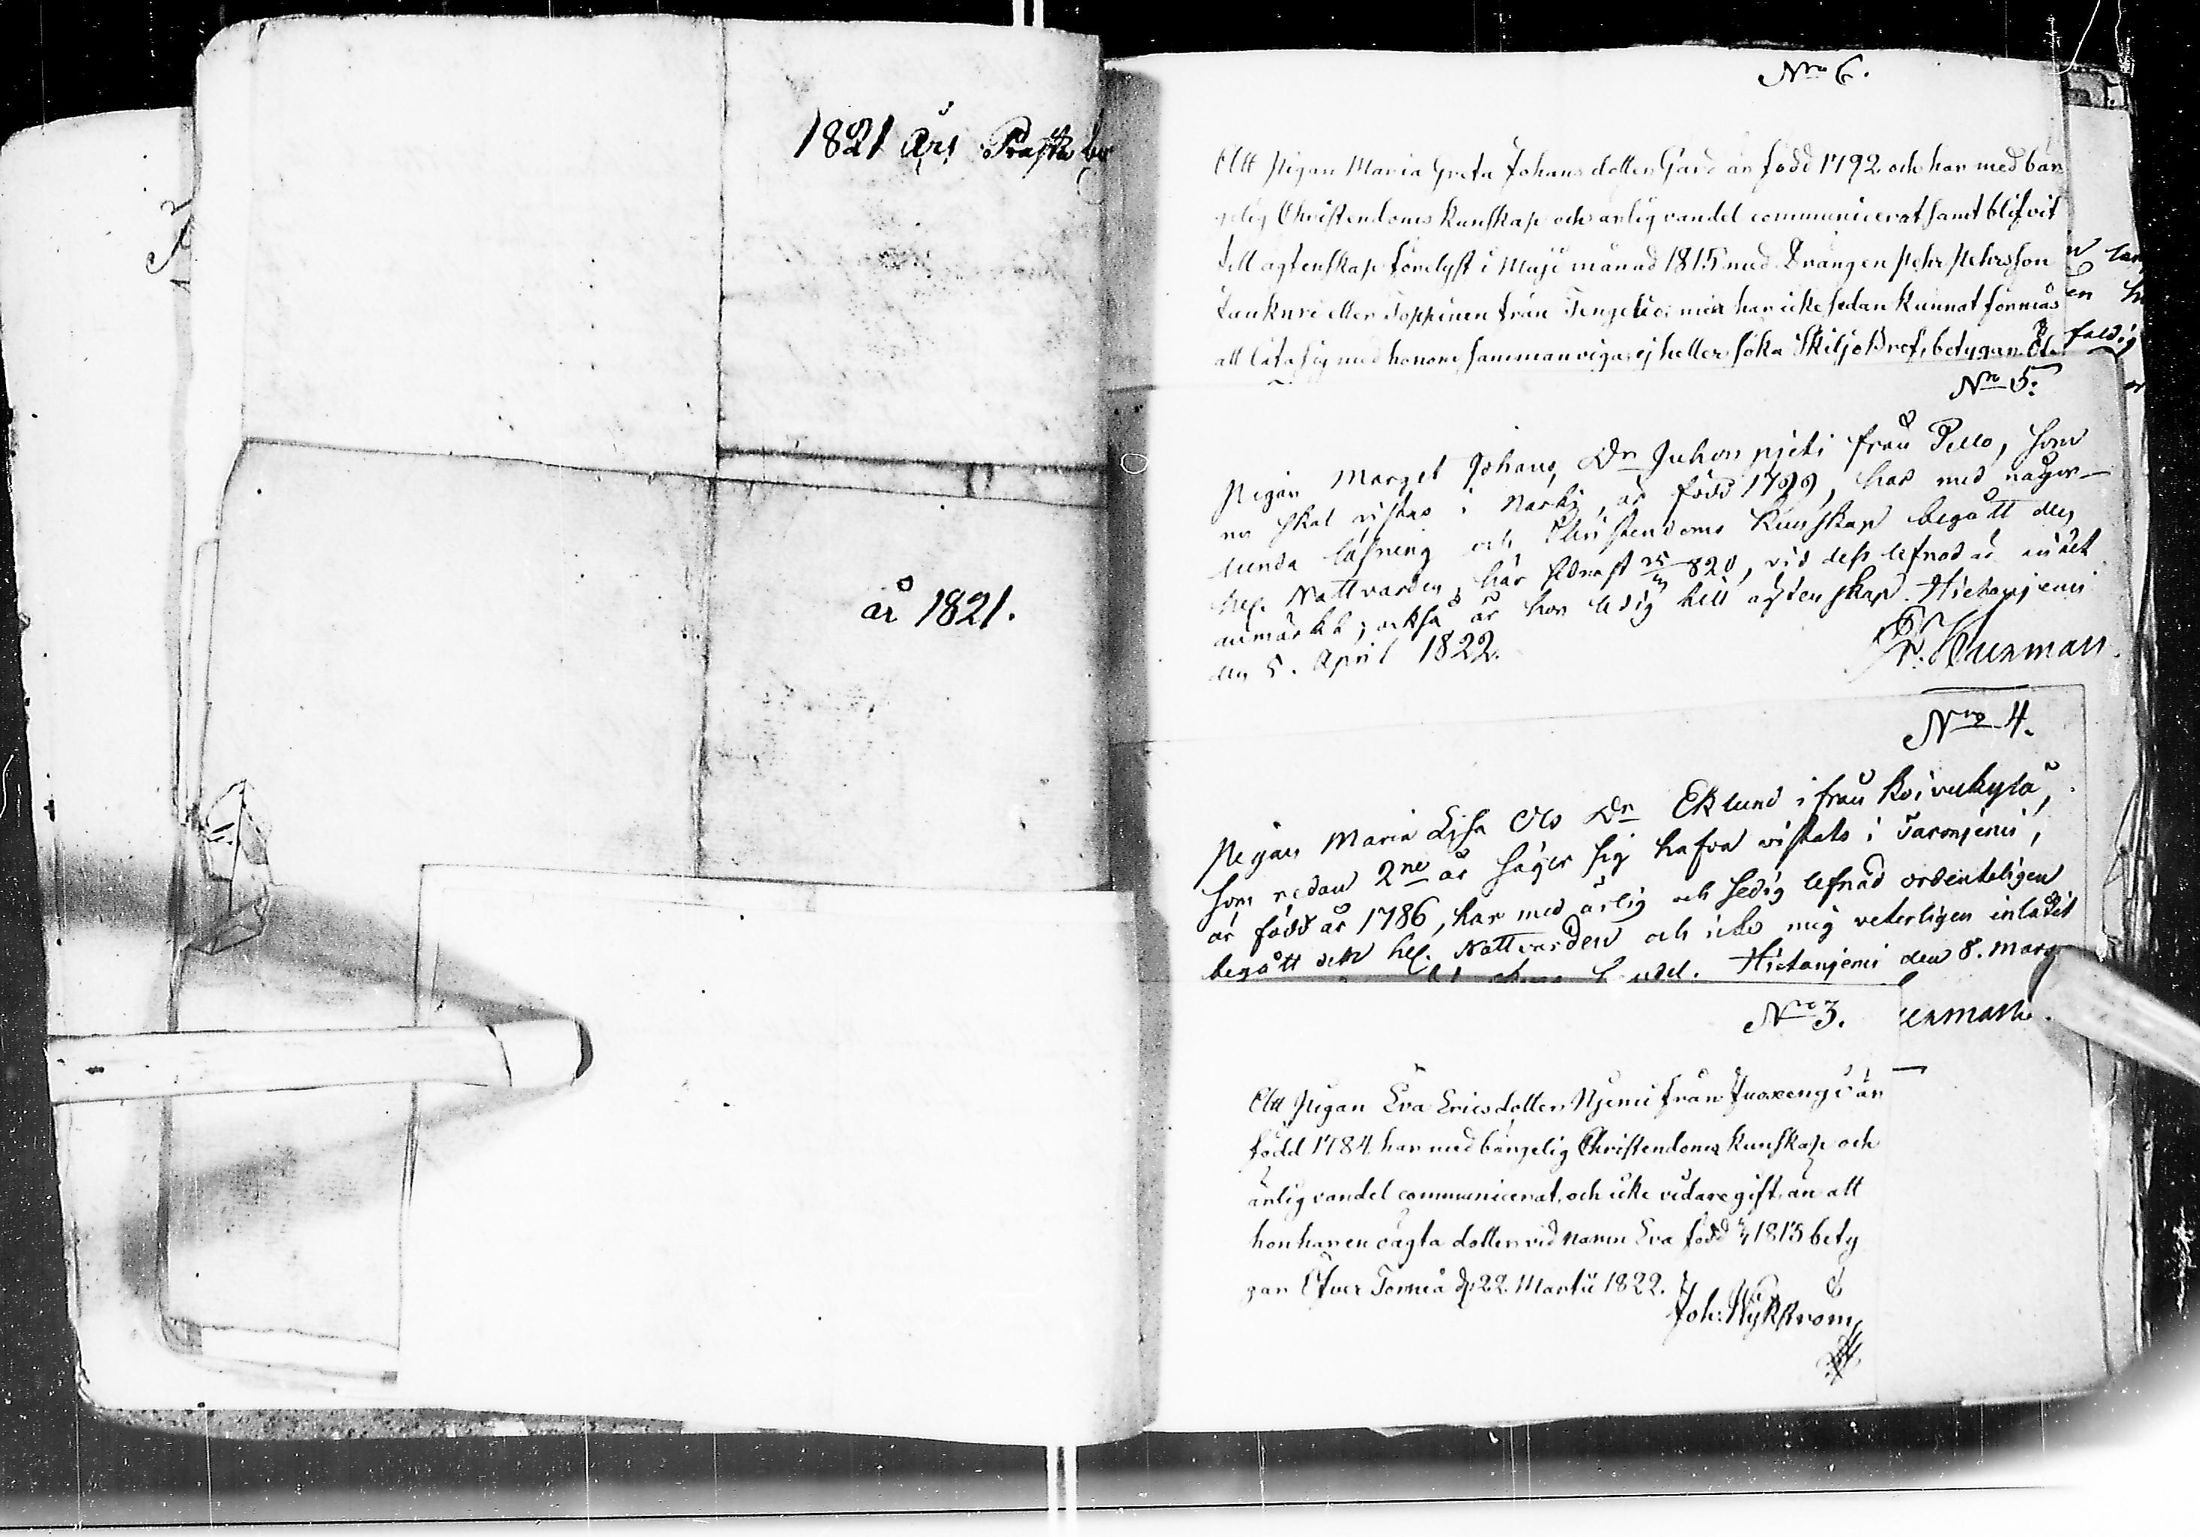 1821 års Präste be
år 1821.
Nro 6.
Att Pigan Maria Greta Johansdotter Gard är född 1792 och har med bär
gelig Christendoms kunskap och ärlig vandel communicerat samt blifvit
till ägtenskap förelyst i Maji månad 1815 med Drängen Pehr Pehrsson
eller Toppinen från Tengeliö, men har icke sedan kunnat förmås
att låta sig med honom sammanviga, ej heller söka Skiljobref, betygar Öf
faldig
Nro 5.
Pigan Marget Johans Dr Juhonpjeti från Pello, som
nu skal vistas i Narki, är född 1799, har med någor-
lunda läsning och Christendoms kunskap begått den
hel. Nattvarden, här sednast 25 820, vid dess lefnad är intet
anmärkt; också är hon ledig till ägtenskap. Hietanjemi
den 5. April 1822.
Nro 4.
Pigan Maria Lisa Ols Dr Eklund ifrån Koivukylä,
som redan 2ne år säger sig hafva vistats i Taronjemi,
är född år 1786, har med ärlig och sedig lefnad ordenteligen
begått den hel. Nattvarden och icke mig veterligen inlåtit
Hietanjemi den 8. Mars
Nro 3.
Att Pigan Eva Ericsdotter Njemi från Juoxengi är
född 1784 har med bärgelig Christendoms kunskap och
ärlig vandel communicerat, och icke vidare gift än att
hon har en oägta dotter vid namn Eva född 1815 bety
gar Öfver Torneå d. 22 Martii 1822.
Joh: Wykström